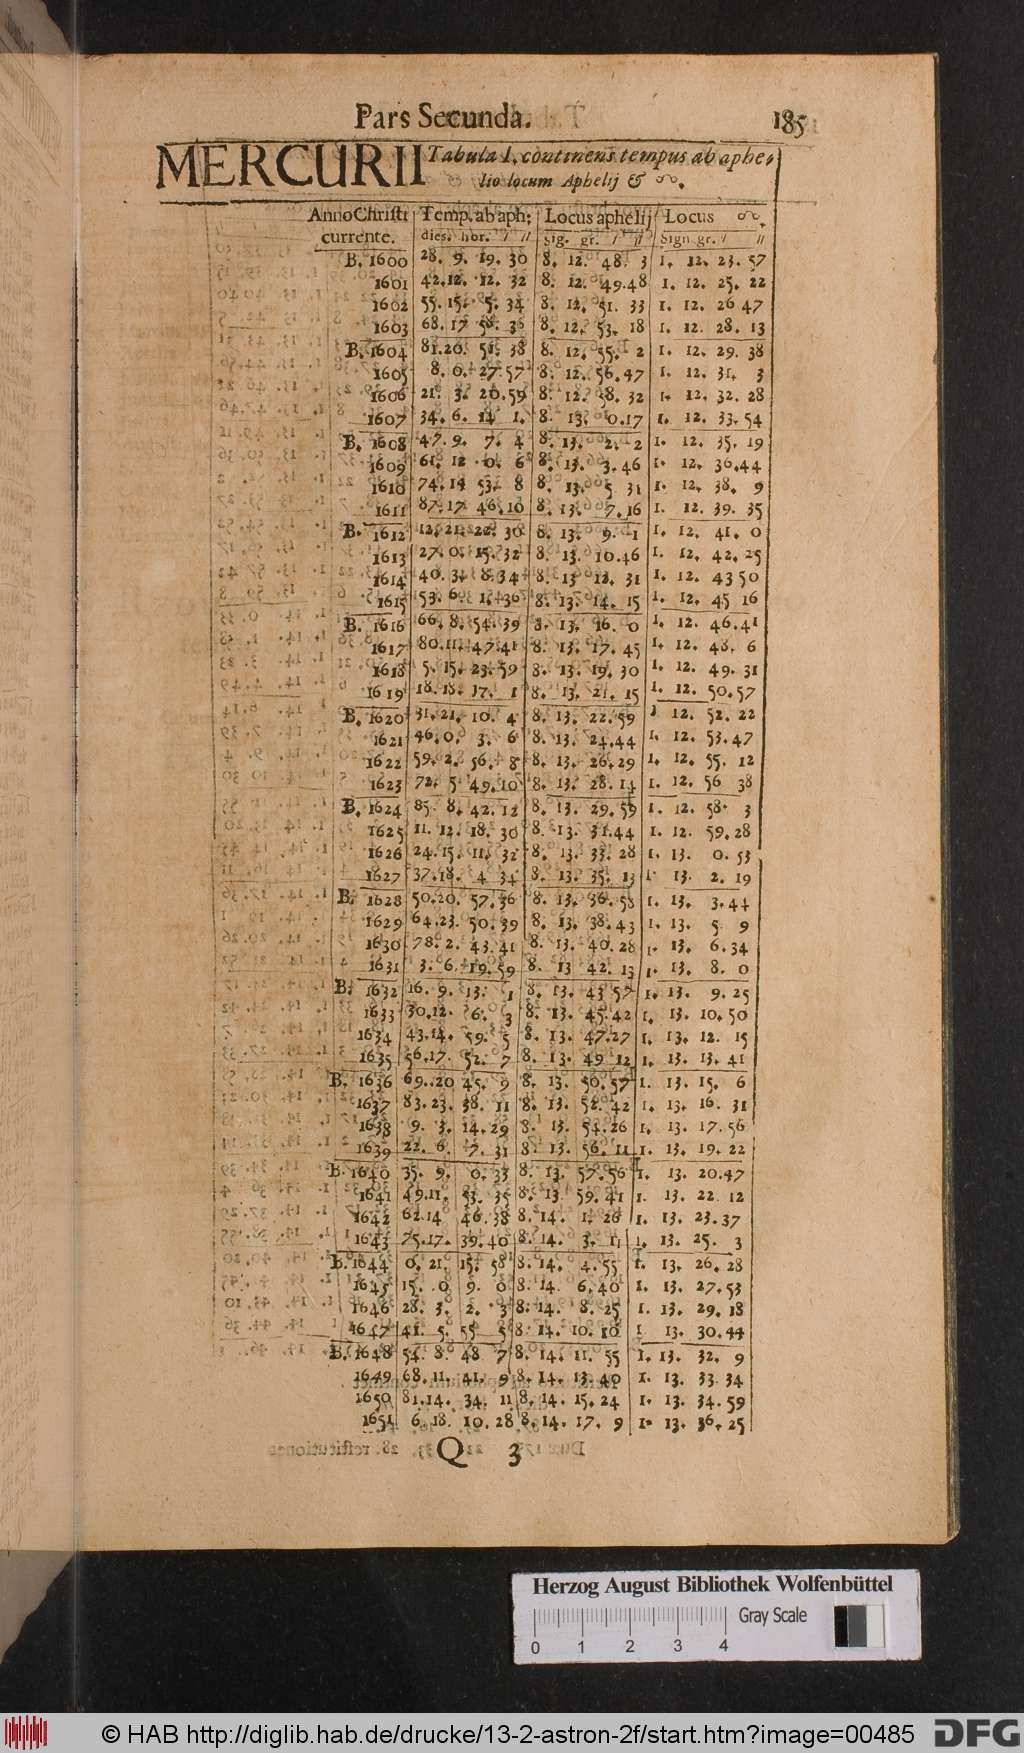 Pars Secunda. 185
MERCURII Tabula I. continens tempus ab aphe-
lio locum Aphelij & ☊.
Anno Christi Temp. ab aph: Locus aphelij Locus ☊.
currente. dies. hor. ′ ″ sig. gr. ′ ″ Sign gr. ′ ″
B. 1600 28. 9. 19. 30 8. 12. 48. 3 1. 12. 23. 57
1601 42. 12. 12. 32 8. 12. 49. 48 1. 12. 25. 22
1602 55. 15. 5. 34 8. 12. 51. 33 1. 12. 26 47
1603 68. 17 58. 36 8. 12. 53. 18 1. 12. 28. 13
B. 1604 81. 20. 51. 38 8. 12. 55. 2 1. 12. 29. 38
1605 8. 0. 27. 57 8. 12. 56. 47 1. 12. 31. 3
1606 21. 3. 20. 59 8. 12. 58. 32 1. 12. 32. 28
1607 34. 6. 14 1. 8. 13. 0. 17 1. 12. 33. 54
B. 1608 47. 9. 7. 4 8. 13. 2. 2 1. 12. 35. 19
1609 61. 12 0. 6 8. 13. 3. 46 1. 12. 36. 44
1610 74. 14 53. 8 8. 13. 5 31 1. 12. 38. 9
1611 87. 17 46. 10 8. 13. 7. 16 1. 12. 39. 35
B. 1612 12. 21. 22. 30 8. 13. 9. 1 1. 12. 41. 0
1613 27. 0. 15. 32 8. 13. 10. 46 1. 12. 42. 25
1614 40. 3. 8. 34 8. 13 12. 31 1. 12. 43 50
1615 53. 6. 1. 36 8. 13. 14. 15 1. 12. 45 16
B. 1616 66. 8. 54. 39 8. 13. 16. 0 1. 12. 46. 41
1617 80. 11. 47. 41 8. 13. 17. 45 1. 12. 48. 6
1618 5. 15. 23. 59 8. 13. 19. 30 1. 12. 49. 31
1619 18. 18. 17. 1 8. 13. 21. 15 1. 12. 50. 57
B. 1620 31. 21. 10. 4 8. 13. 22. 59 1 12. 52. 22
1621 46. 0. 3. 6 8. 13. 24. 44 1. 12. 53. 47
1622 59. 2. 56. 8 8. 13. 26. 29 1. 12. 55. 12
1623 72. 5 49. 10 8. 13. 28. 14 1. 12. 56 38
B. 1624 85. 8. 42. 12 8. 13. 29. 59 1. 12. 58. 3
1625 11. 12. 18. 30 8. 13. 31. 44 1. 12. 59. 28
1626 24. 15. 11. 32 8. 13. 33. 28 1. 13. 0. 53
1627 37. 18. 4 34 8. 13. 35. 13 1. 13. 2. 19
B. 1628 50. 20. 57. 36 8. 13. 36. 58 1. 13. 3. 44
1629 64. 23. 50. 39 8. 13. 38. 43 1. 13. 5 9
1630 78. 2. 43. 41 8. 13. 40. 28 1. 13. 6. 34
1631 3. 6. 19. 59 8. 13 42. 13 1. 13. 8. 0
B. 1632 16. 9. 13. 1 8. 13. 43 57 1. 13. 9. 25
1633 30. 12. 6. 3 8. 13. 45. 42 1. 13. 10. 50
1634 43. 14. 59. 5 8. 13. 47. 27 1. 13. 12. 15
1635 56. 17. 52. 7 8. 13. 49 12 1. 13. 13. 41
B. 1636 69. 20 45. 9 8. 13. 50. 57 1. 13. 15. 6
1637 83. 23. 38. 11 8. 13. 52. 42 1. 13. 16. 31
1638 9. 3. 14. 29 8. 13. 54. 26 1. 13. 17. 56
1639 22. 6. 7. 31 8. 13. 56. 11 1. 13. 19. 22
B. 1640 35. 9. 0. 33 8. 13. 57. 56 1. 13. 20. 47
1641 49. 11. 53. 35 8. 13 59. 41 1. 13. 22 12
1642 62. 14 46. 38 8. 14. 1. 26 1. 13. 23. 37
1643 75. 17. 39. 40 8. 14. 3. 11 1. 13. 25. 3
B. 1644 0. 21. 15. 58 8. 14. 4. 55 1. 13. 26. 28
1645 15. 0 9. 0 8. 14 6. 40 1. 13. 27. 53
1646 28. 3. 2. 3 8. 14. 8. 25 1. 13. 29. 18
1647 41. 5. 55 5 8. 14. 10. 10 1 13. 30. 44
B. 1648 54. 8. 48 7 8. 14. 11. 55 1. 13. 32. 9
1649 68. 11. 41. 9 8. 14. 13. 40 1. 13. 33. 34
1650 81. 14. 34. 11 8. 14. 15. 24 1. 13. 34. 59
1651 6. 18. 10. 28 8. 14. 17. 9 1. 13. 36. 25
Q 3
Herzog August Bibliothek Wolfenbüttel
Gray Scale
0 1 2 3 4
© HAB http://diglib.hab.de/drucke/13-2-astron-2f/start.htm?image=00485 DFG